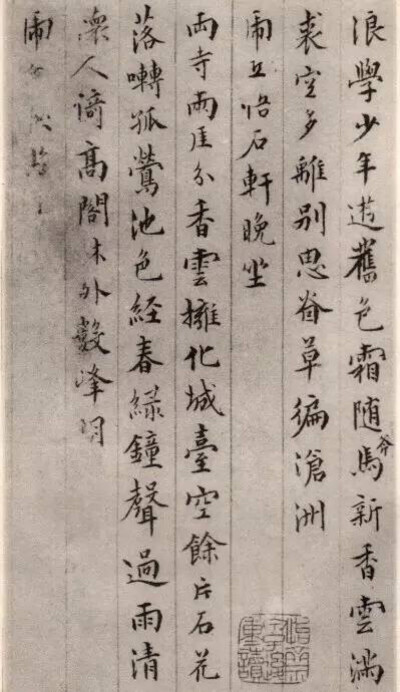 浪學少年遊舊色霜隨馬新香雲滿
裘空多離別思春草徧滄洲
虎丘悟石軒晚坐
兩寺兩厓分香雲擁化城臺空餘片石花
落囀孤鶯池色經春綠鐘聲過雨清
懷人高閣木外數峰明
虎